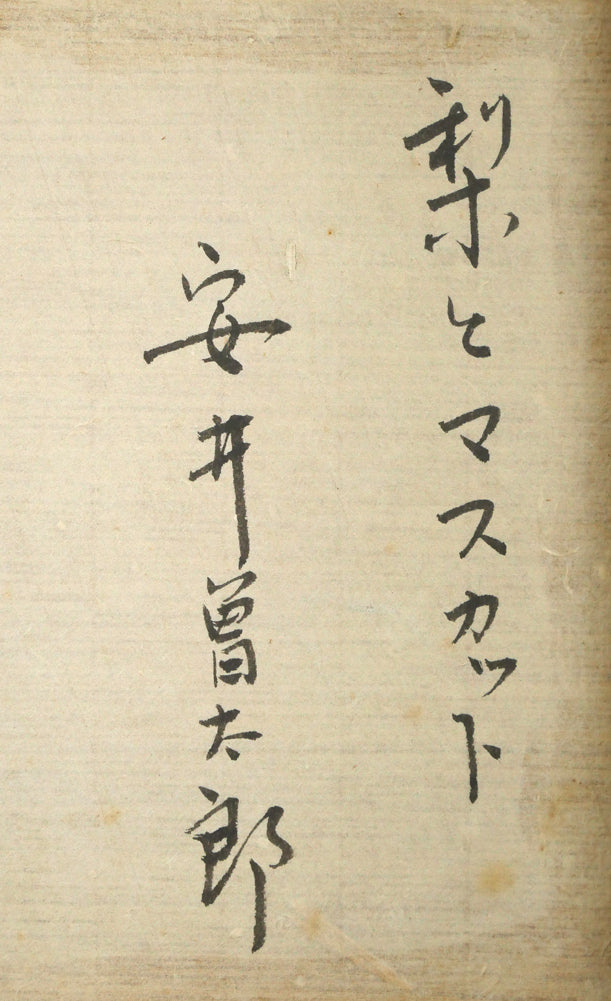 梨とマスカット
安井曽太郎